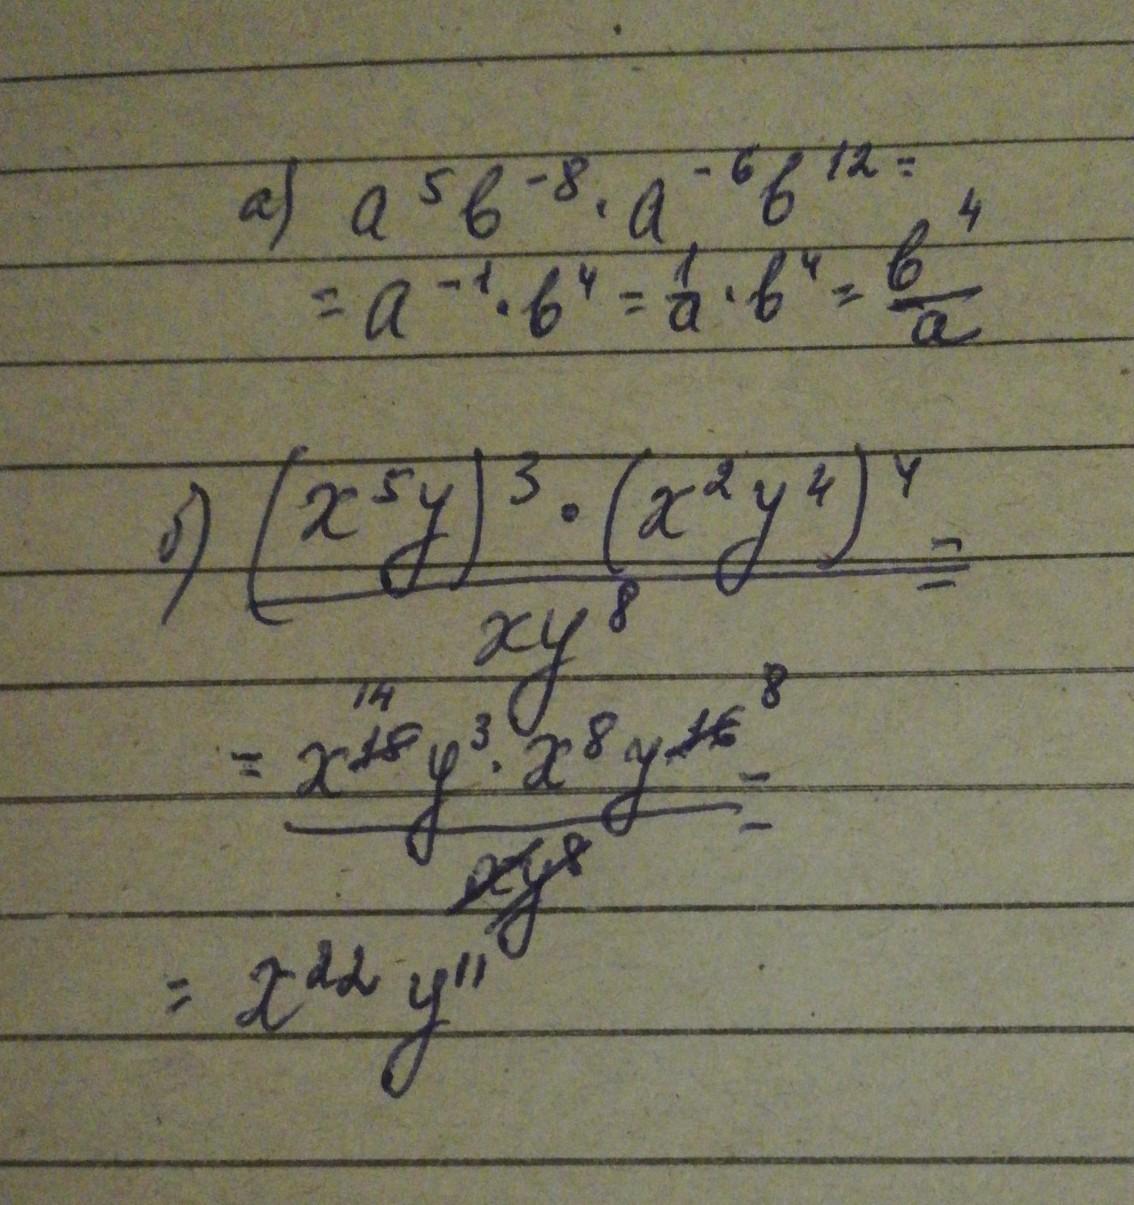 а) a⁵b⁻⁸·a⁻⁶b¹²=
=a⁻¹·b⁴=1/a·b⁴=b⁴/a
б) (x⁵y)³·(x²y⁴)⁴=
xy⁸
14 8
=x¹⁵y³·x⁸y¹⁶=
xy⁸
=x²²y¹¹